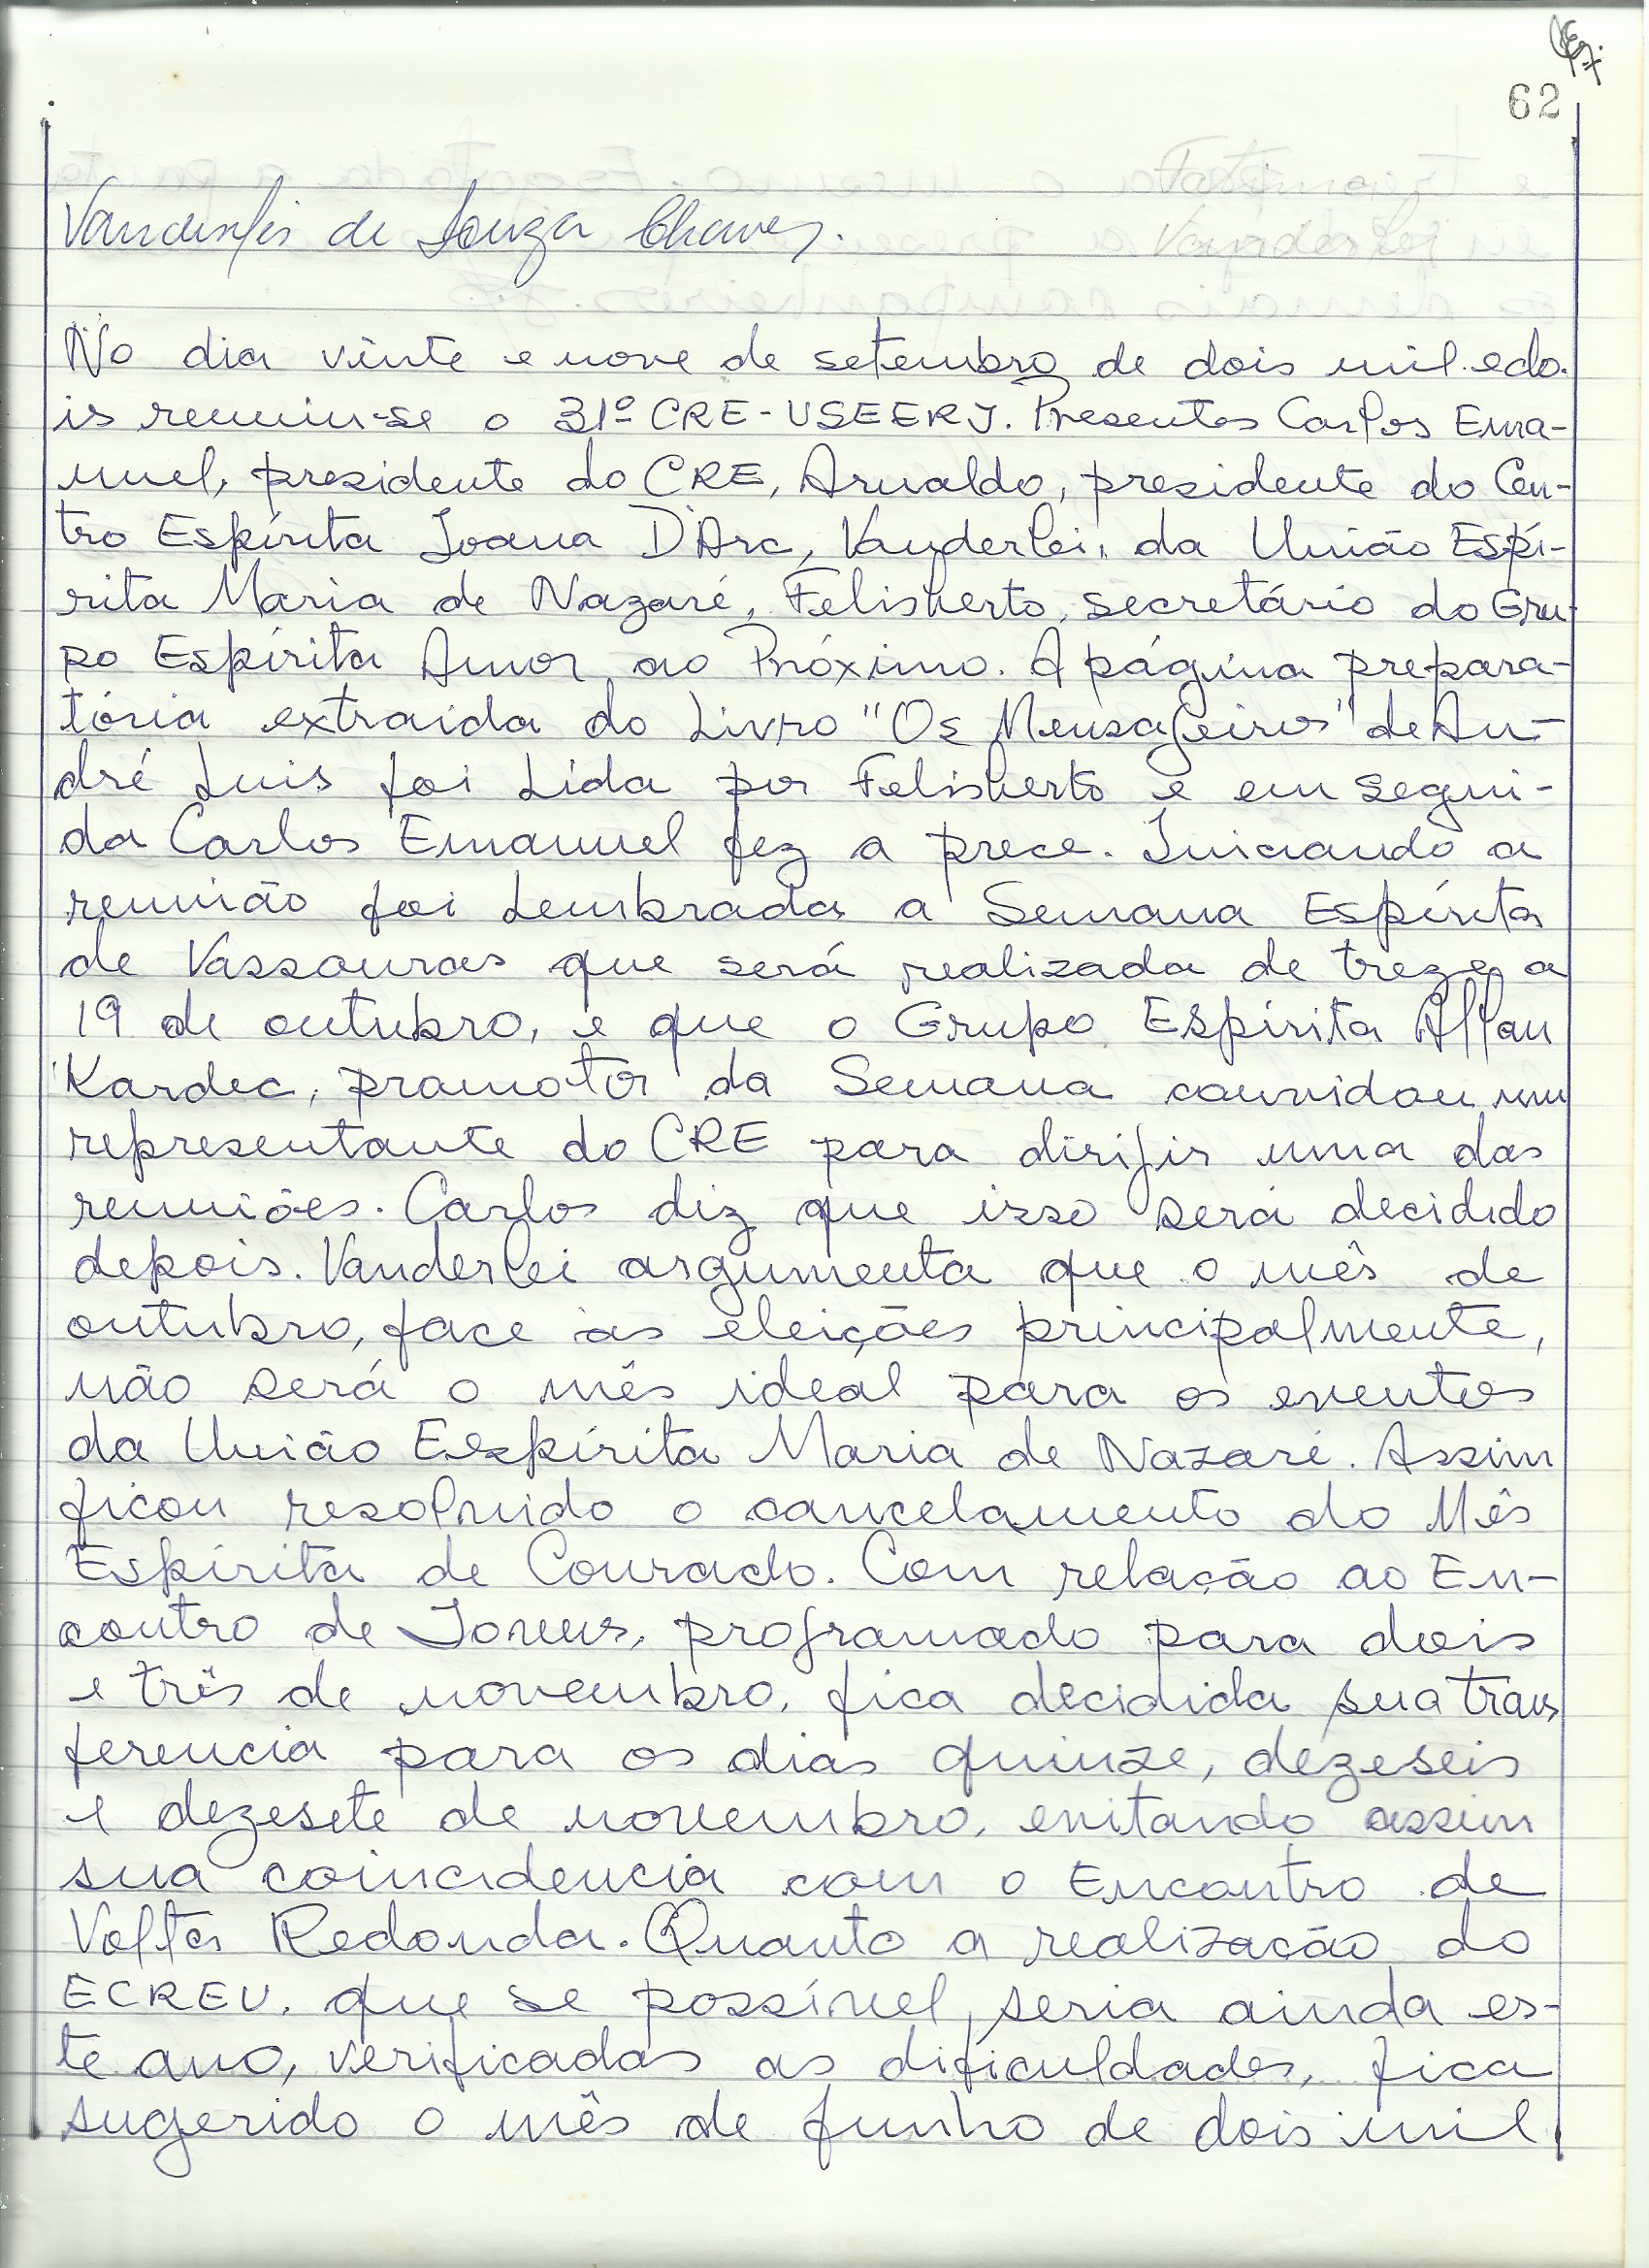 62
Vanderlei de Souza Chaves.
No dia vinte e nove de setembro de dois mil e do-
is reuniu-se o 31º CRE - USEERJ. Presentes Carlos Ema-
nuel, presidente do CRE, Arnaldo, presidente do Cen-
tro Espírita Joana D'Arc, Vanderlei, da União Espí-
rita Maria de Nazaré, Felisberto, secretário do Gru-
po Espírita Amor ao Próximo. A página prepara-
tória extraida do Livro "Os Mensageiros" de An-
dré Luis foi Lida por Felisberto e em segui-
da Carlos Emanuel fez a prece. Iniciando a
reunião foi Lembrada a Semana Espírita
de Vassouras que será realizada de treze a
19 de outubro, e que o Grupo Espírita Allan
Kardec, promotor da Semana convidou um
representante do CRE para dirigir uma das
reuniões. Carlos diz que isso será decidido
depois. Vanderlei argumenta que o mês de
outubro, face as eleições principalmente,
não será o mês ideal para os eventos
da União Espírita Maria de Nazaré. Assim
ficou resolvido o cancelamento do Mês
Espírita de Conrado. Com relação ao En-
contro de Jovens, programado para dois
e três de novembro, fica decidida sua trans
ferencia para os dias quinze, dezeseis
e dezesete de novembro, evitando assim
sua coincidencia com o Encontro de
Volta Redonda. Quanto a realização do
ECREV, que se possível, seria ainda es-
te ano, verificadas as dificuldades, fica
sugerido o mês de junho de dois mil